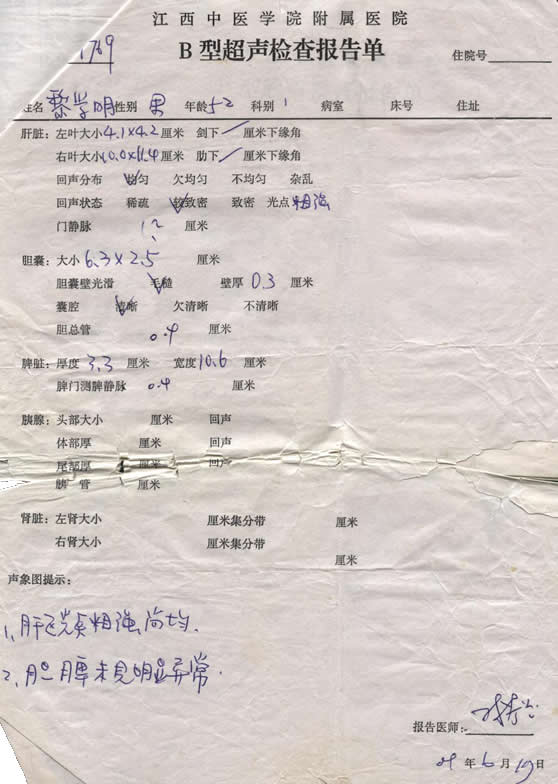 江西中医学院附属医院
B型超声检查报告单
1769
住院号
姓名 黎学明 性别 男 年龄 52 科别 1 病室 床号 住址
肝脏：左叶大小 4.1×4.2 厘米 剑下 / 厘米下缘角
右叶大小 10.0×11.4 厘米 肋下 / 厘米下缘角
回声分布 均匀 欠均匀 不均匀 杂乱
回声状态 稀疏 较致密 致密 光点 粗强
门静脉 1.2 厘米
胆囊：大小 6.3×2.5 厘米
胆囊壁光滑 毛糙 壁厚 0.3 厘米
囊腔 清晰 欠清晰 不清晰
胆总管 0.4 厘米
脾脏：厚度 3.3 厘米 宽度 10.6 厘米
脾门测脾静脉 0.4 厘米
胰腺：头部大小 厘米 回声
体部厚 厘米 回声
尾部厚 厘米 回声
胰管 厘米
肾脏：左肾大小 厘米集分带 厘米
右肾大小 厘米集分带
厘米
声象图提示：
1、肝区光点粗强尚均.
2、胆脾未见明显异常.
报告医师：
04年6月19日